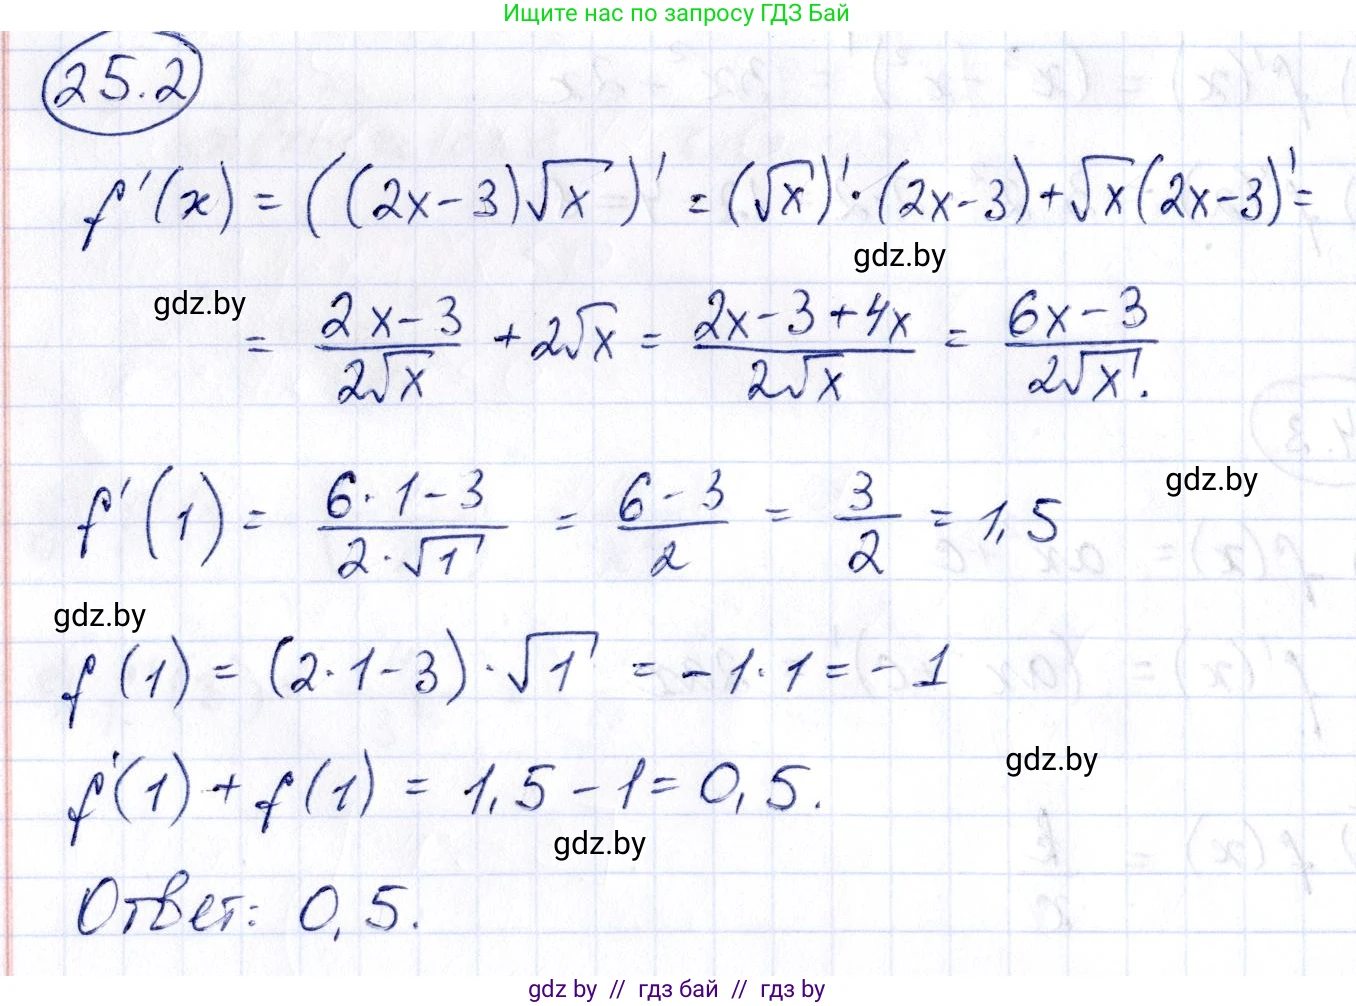 Ищите нас по запросу ГДЗ Бай
25.2
f'(x) = ((2x-3)√x)' = (√x)'·(2x-3)+√x(2x-3)'=
gdz.by
gdz.by
= (2x-3)/(2√x) + 2√x = (2x-3+4x)/(2√x) = (6x-3)/(2√x).
gdz.by
f'(1) = (6·1-3)/(2·√1) = (6-3)/2 = 3/2 = 1,5
gdz.by
f(1) = (2·1-3)·√1 = -1·1=-1
gdz.by
f'(1)+f(1) = 1,5-1=0,5.
gdz.by
Ответ: 0,5.
gdz.by // гдз бай // гдз by